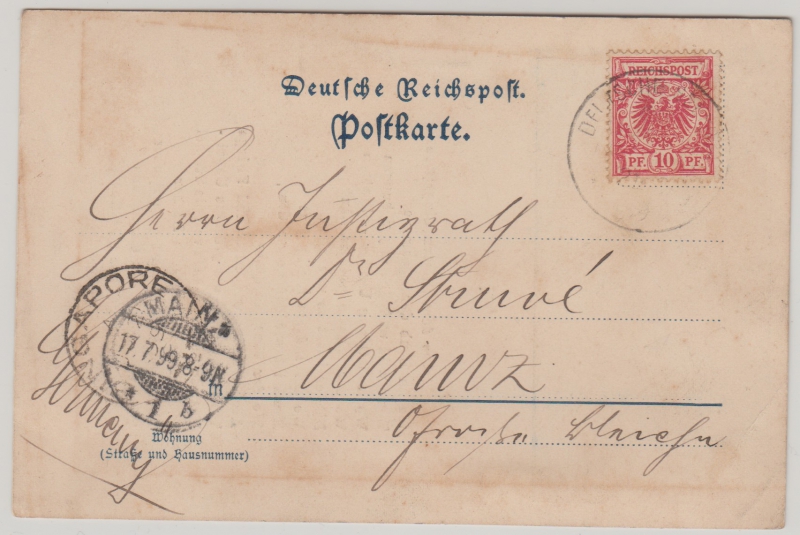 Deutsche Reichspost.
Postkarte.
REICHSPOST
PF. 10 PF.
Herrn Justizrath
Dr. Struvé
Mainz
in
Große Bleiche
MAINZ
17.7.99.8-9N.
* 1 b
Germany
Wohnung
(Straße und Hausnummer)